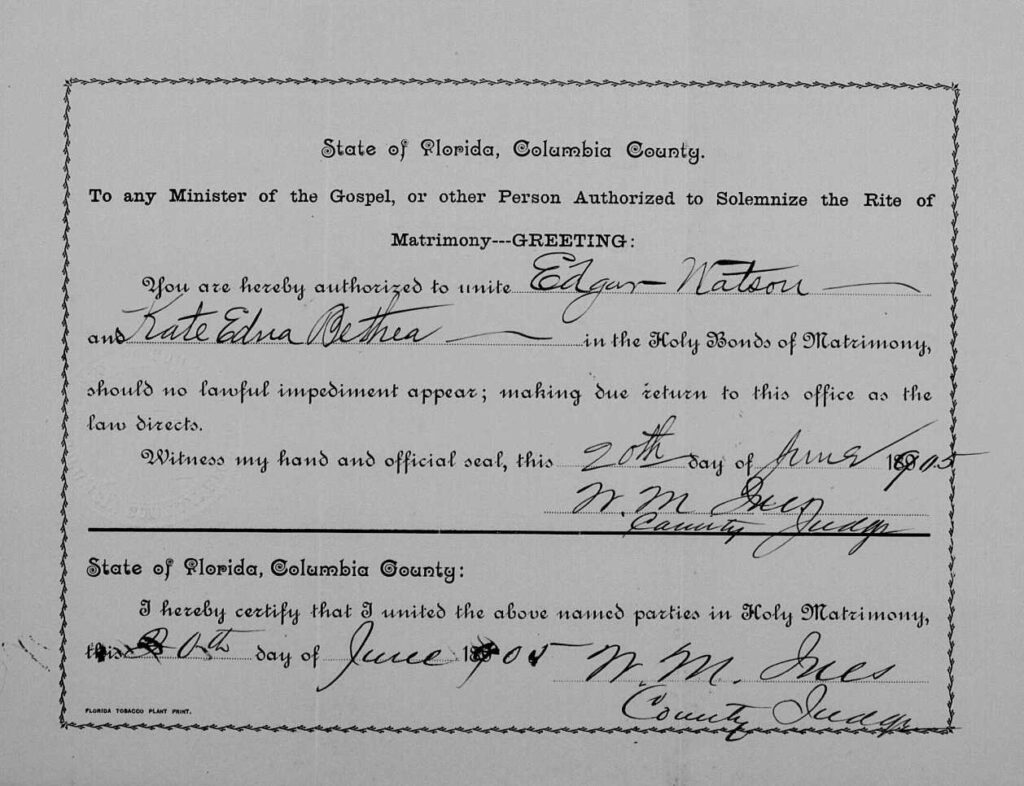 State of Florida, Columbia County.
To any Minister of the Gospel, or other Person Authorized to Solemnize the Rite of
Matrimony---GREETING:
You are hereby authorized to unite Edgar Watson
and Kate Edna Bethea in the Holy Bonds of Matrimony,
should no lawful impediment appear; making due return to this office as the
law directs.
Witness my hand and official seal, this 20th day of June 1905
W. M. Ives
County Judge
State of Florida, Columbia County:
I hereby certify that I united the above named parties in Holy Matrimony,
this 20th day of June 1905 W. M. Ives
County Judge
FLORIDA TOBACCO PLANT PRINT.